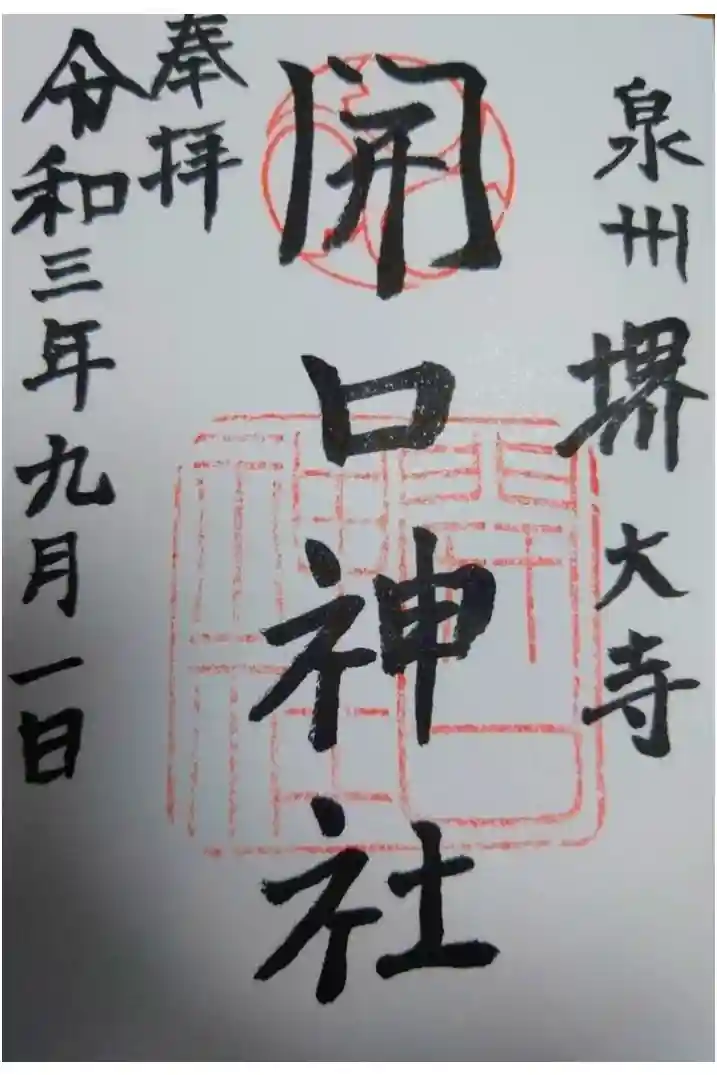 泉州堺大寺
開口神社
奉拝
令和三年九月一日
開口
神社